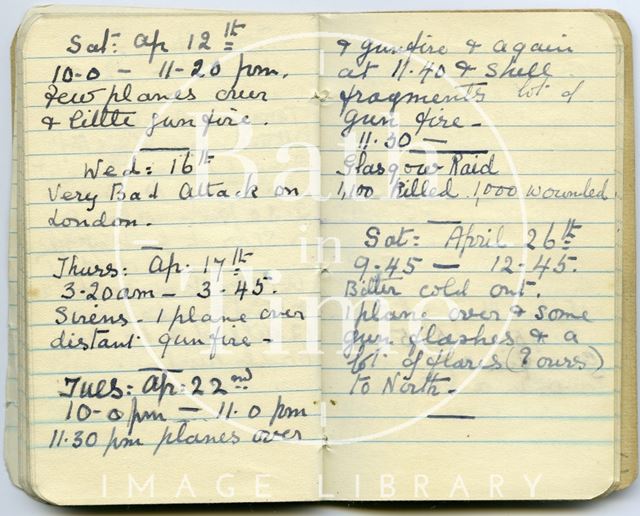 Sat: Ap 12th
10-0 - 11-20 pm.
Few planes over
& little gun fire.
Wed: 16th
Very Bad Attack on
London.
Thurs: Ap. 17th
3-20am - 3-45.
Sirens - 1 plane over
distant gunfire -
Tues: Ap: 22nd
10-0 pm - 11.0 pm
11.30 pm planes over
& gunfire & again
at 11.40 & Shell
fragments lot of
gun fire -
11.30 -
Glasgow Raid
1,100 Killed 1,000 wounded.
Sat: April 26th
9-45 - 12-45.
Bitter cold out.
1 plane over & some
gun flashes & a
lot of flares (? ours)
to North -
Bath
in
Time
IMAGE LIBRARY